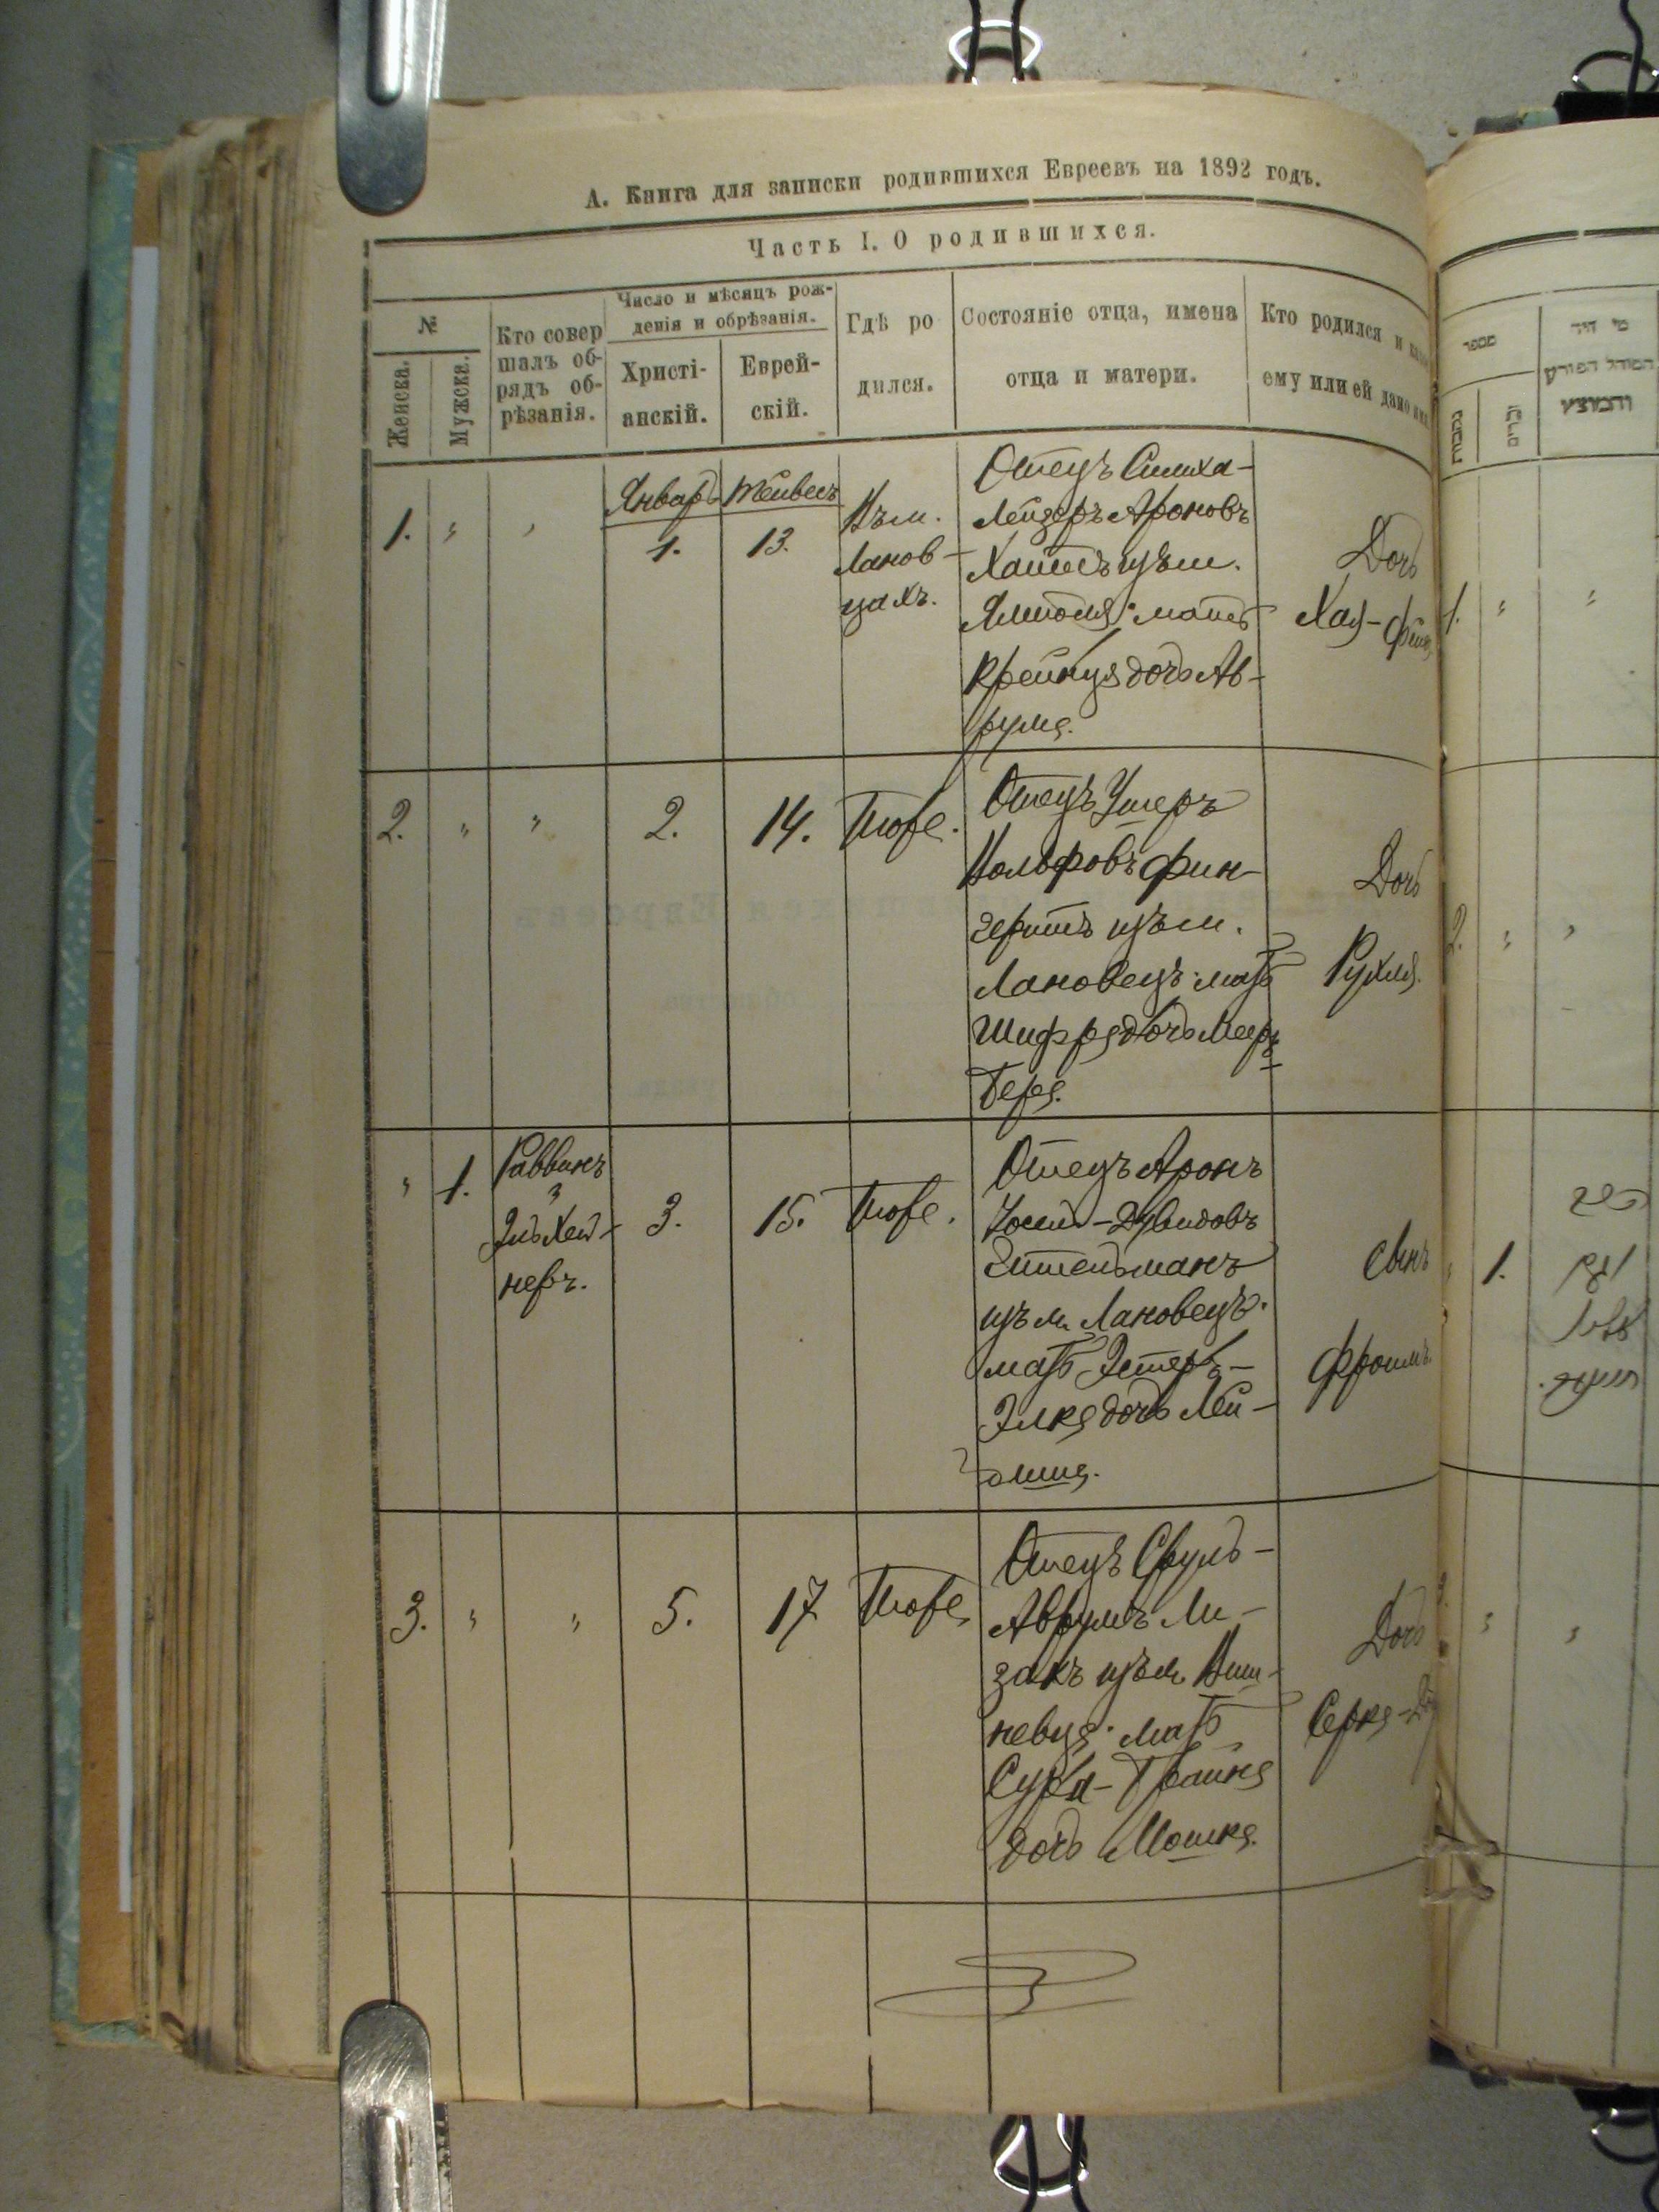 А. Книга для записки родившихся Евреевъ на 1892 годъ.
Часть I. О родившихся.
№
Женска.
Мужска.
Кто совер
шалъ об-
рядъ об-
рѣзанія.
Число и мѣсяцъ рож-
денія и обрѣзанія.
Христі-
анскій.
Еврей-
скій.
Гдѣ ро
дился.
Состояніе отца, имена
отца и матери.
Кто родился и
ему или ей дано
1. " "
Январь
1.
Тейвесъ
13.
Въ м.
Ланов-
цахъ.
Отецъ Симха-
Лейзеръ Ароновъ
изъ м.
мать
Крейнця дочь Ав-
рума.
Дочь
Хая-
2. " "
2.
14.
Тоже.
Отецъ Ушеръ
Вольфовъ Фин-
геритъ изъ м.
Лановецъ. мать
Шифра дочь Меер
Бера.
Дочь
Рухля.
" 1.
Раввинъ
3.
15.
Тоже.
Отецъ Аронъ
Иосъ-Дувидовъ
изъ м. Лановецъ.
мать Эстеръ-
Элка дочь Лей-
Сынъ
Фроимъ.
3. " "
5.
17
Тоже,
Отецъ Сруль-
Аврумъ Ли-
закъ изъ м. Виш-
невца. мать
Сура-Брайна
дочь Мошка.
Дочь
Серка-
מספר
נקבות
זכרים
מי היה
המוהל הפורע
והמוצץ
1. " "
2. " "
1.